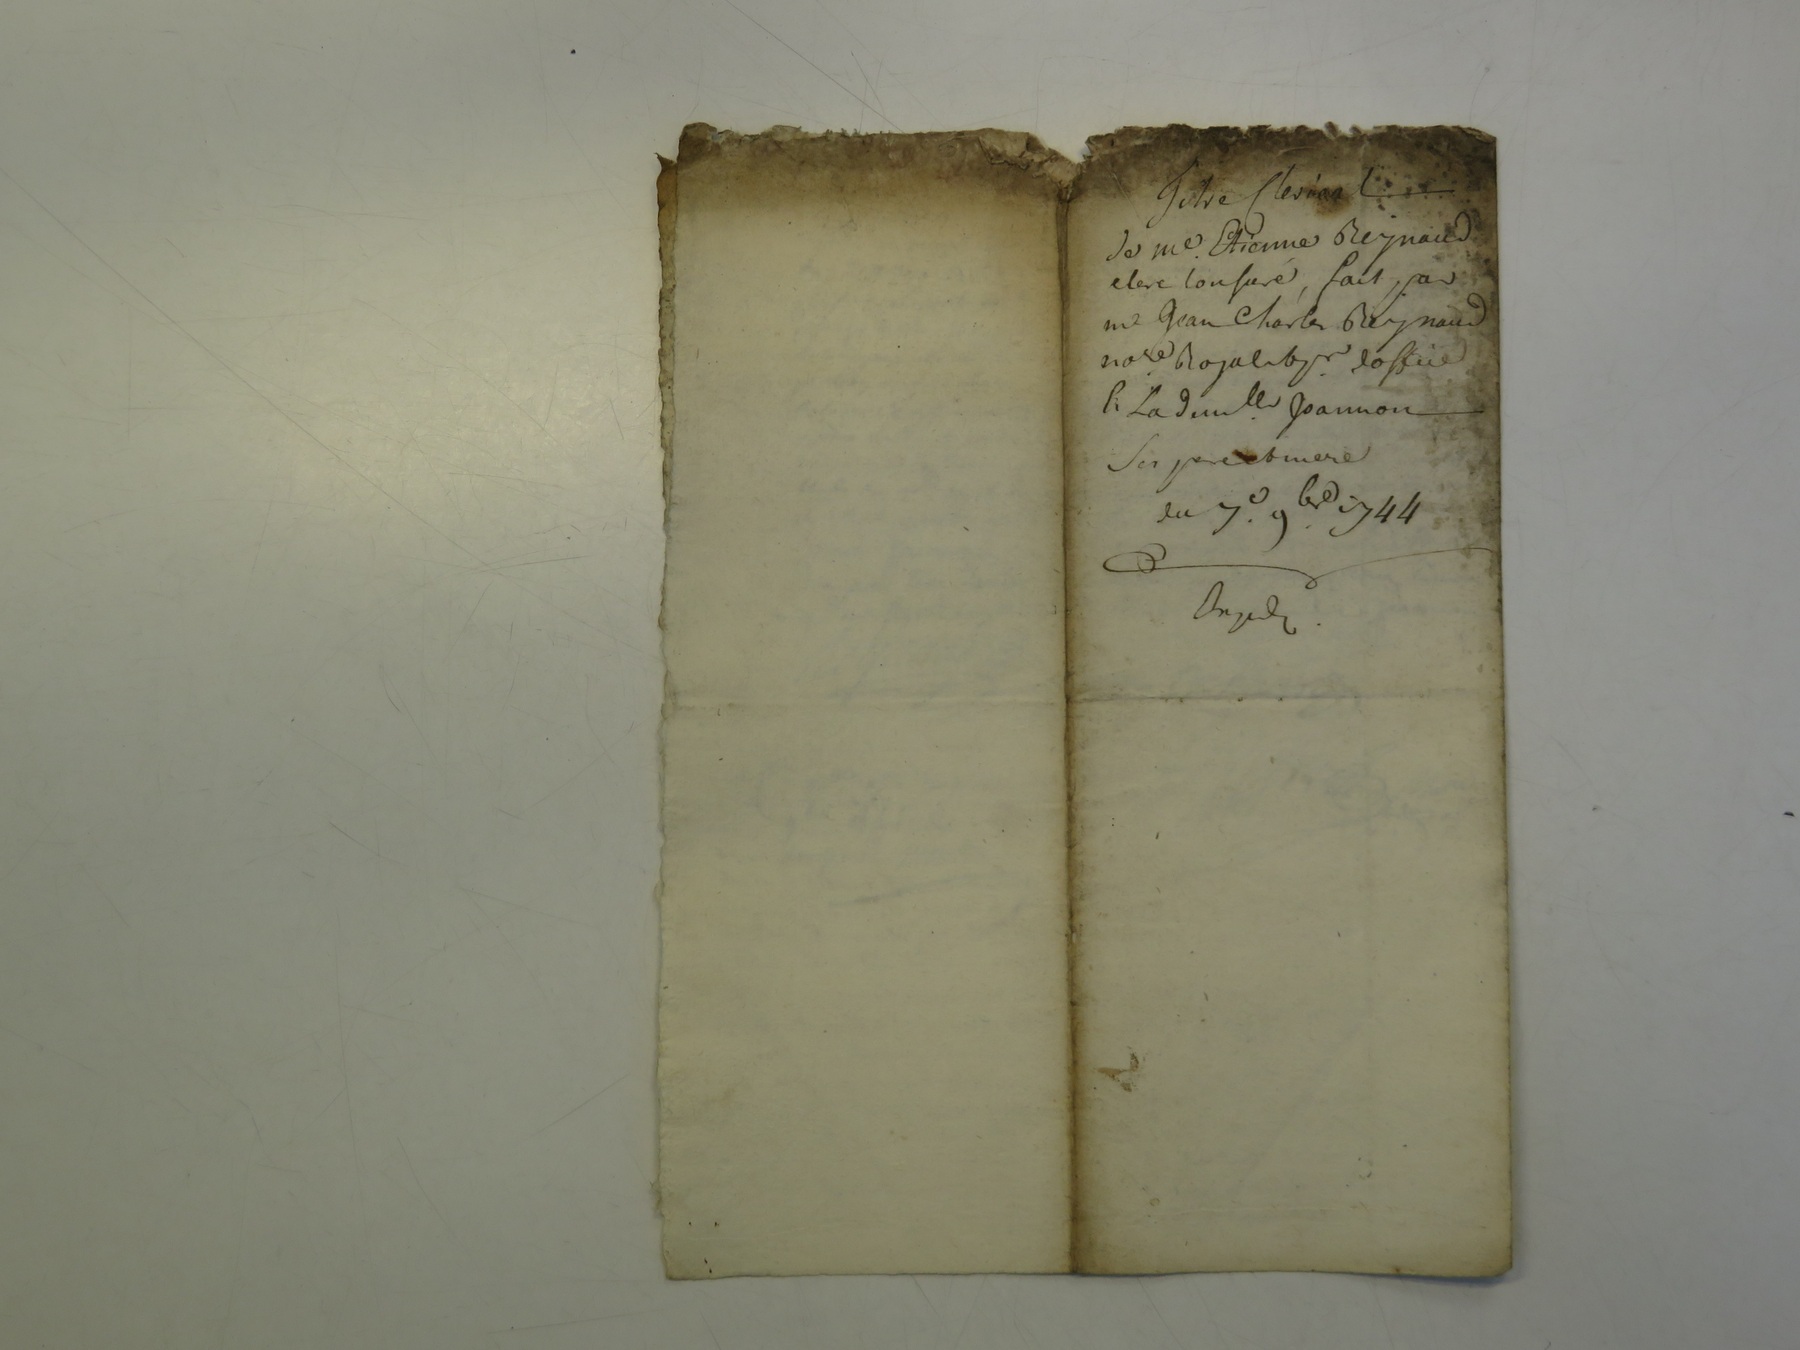 Titre Clerical
de me. Etienne Reynaud
clerc tonsuré, fait par
me Jean Charles Reynaud
nore. Royal
& La Demlle. Joannon
Ses pere et mere
du 7e. 9bre. 1744
Expedié.